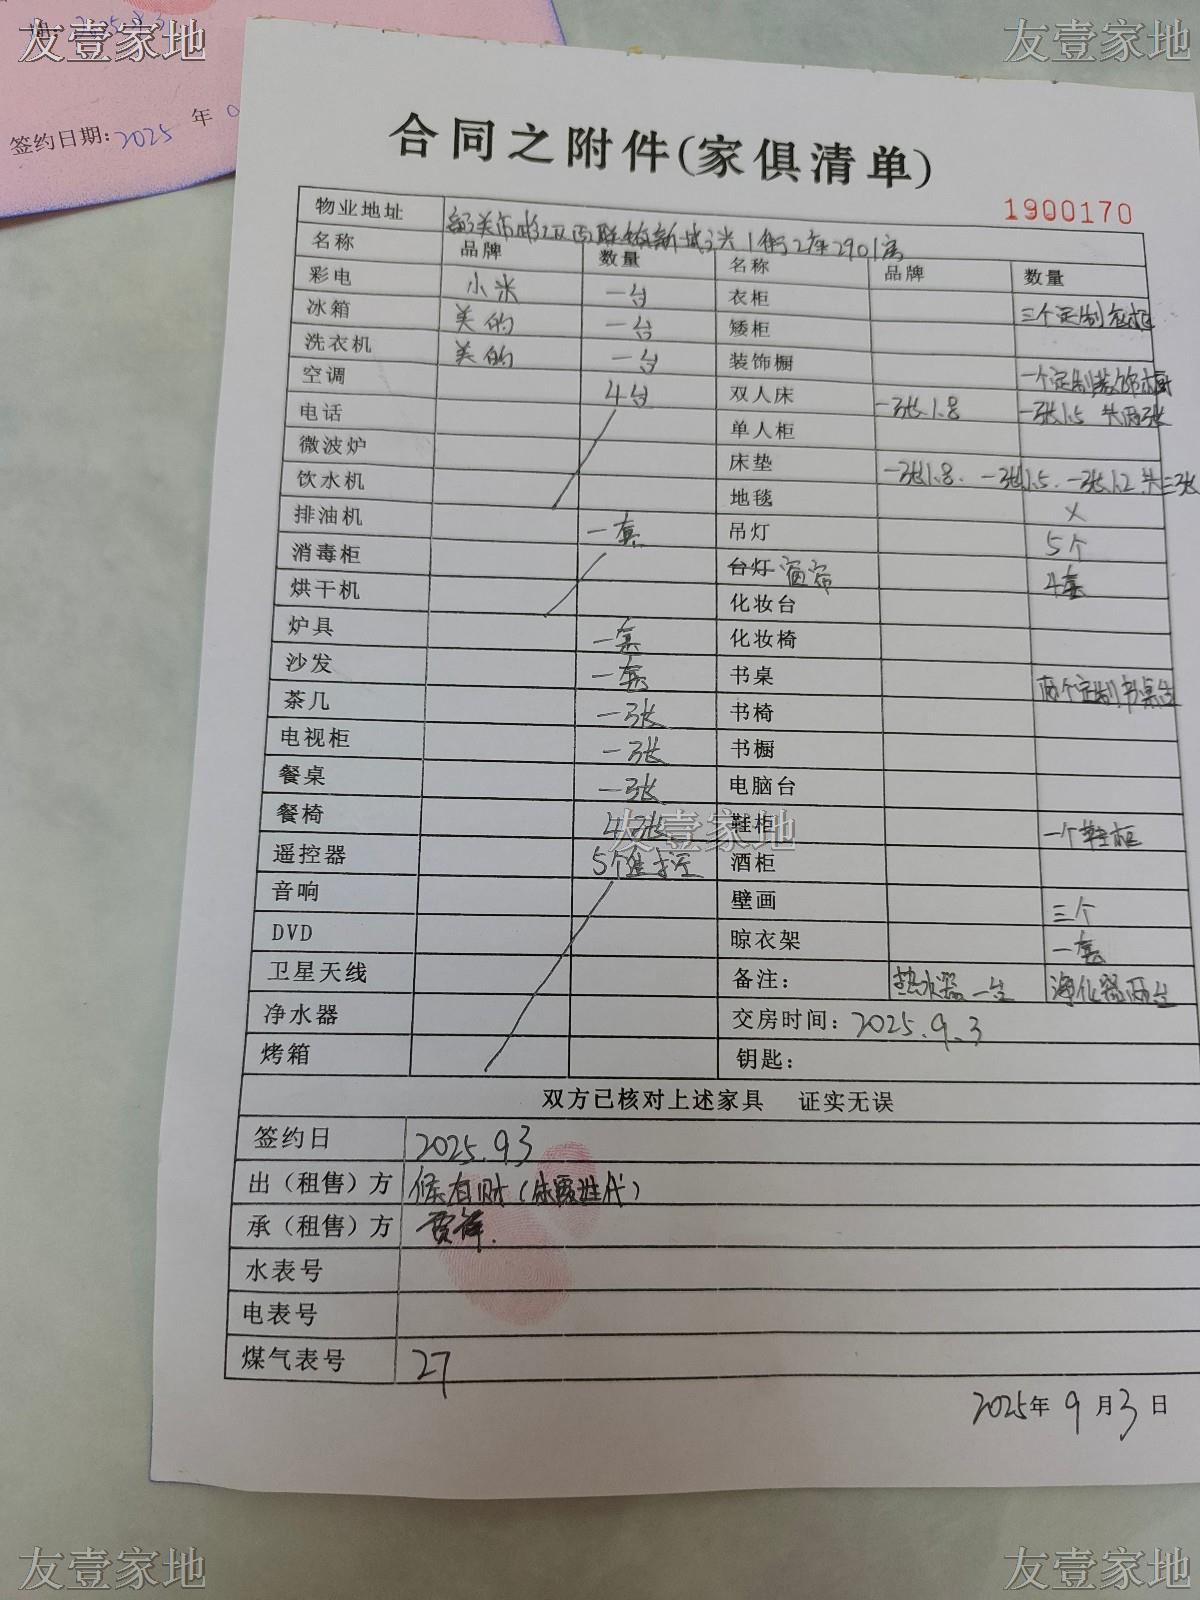 友壹家地
友壹家地
签约日期：2025 年
合同之附件(家俱清单)
1900170
物业地址 2座2901房
名称 品牌 数量 名称 品牌 数量
彩电 小米 一台 衣柜 三个定制衣柜
冰箱 美的 一台 矮柜
洗衣机 美的 一台 装饰橱 一个定制装饰橱
空调 4台 双人床 一张1.8 一张1.5 共两张
电话 单人柜
微波炉 床垫 一张1.8、一张1.5、一张1.2 共三张
饮水机 地毯 X
排油机 一套 吊灯 5个
消毒柜 台灯 窗帘 4套
烘干机 化妆台
炉具 一套 化妆椅
沙发 一套 书桌 两个定制书桌台
茶几 一张 书椅
电视柜 一张 书橱
餐桌 一张 电脑台
餐椅 4张 鞋柜 一个鞋柜
友壹家地
遥控器 5个 酒柜
音响 壁画 三个
DVD 晾衣架 一套
卫星天线 备注： 热水器一台 净化器两台
净水器 交房时间：2025.9.3
烤箱 钥匙：
双方已核对上述家具 证实无误
签约日 2025.9.3
出（租售）方
承（租售）方 贾
水表号
电表号
煤气表号 27
2025年 9 月 3 日
友壹家地
友壹家地